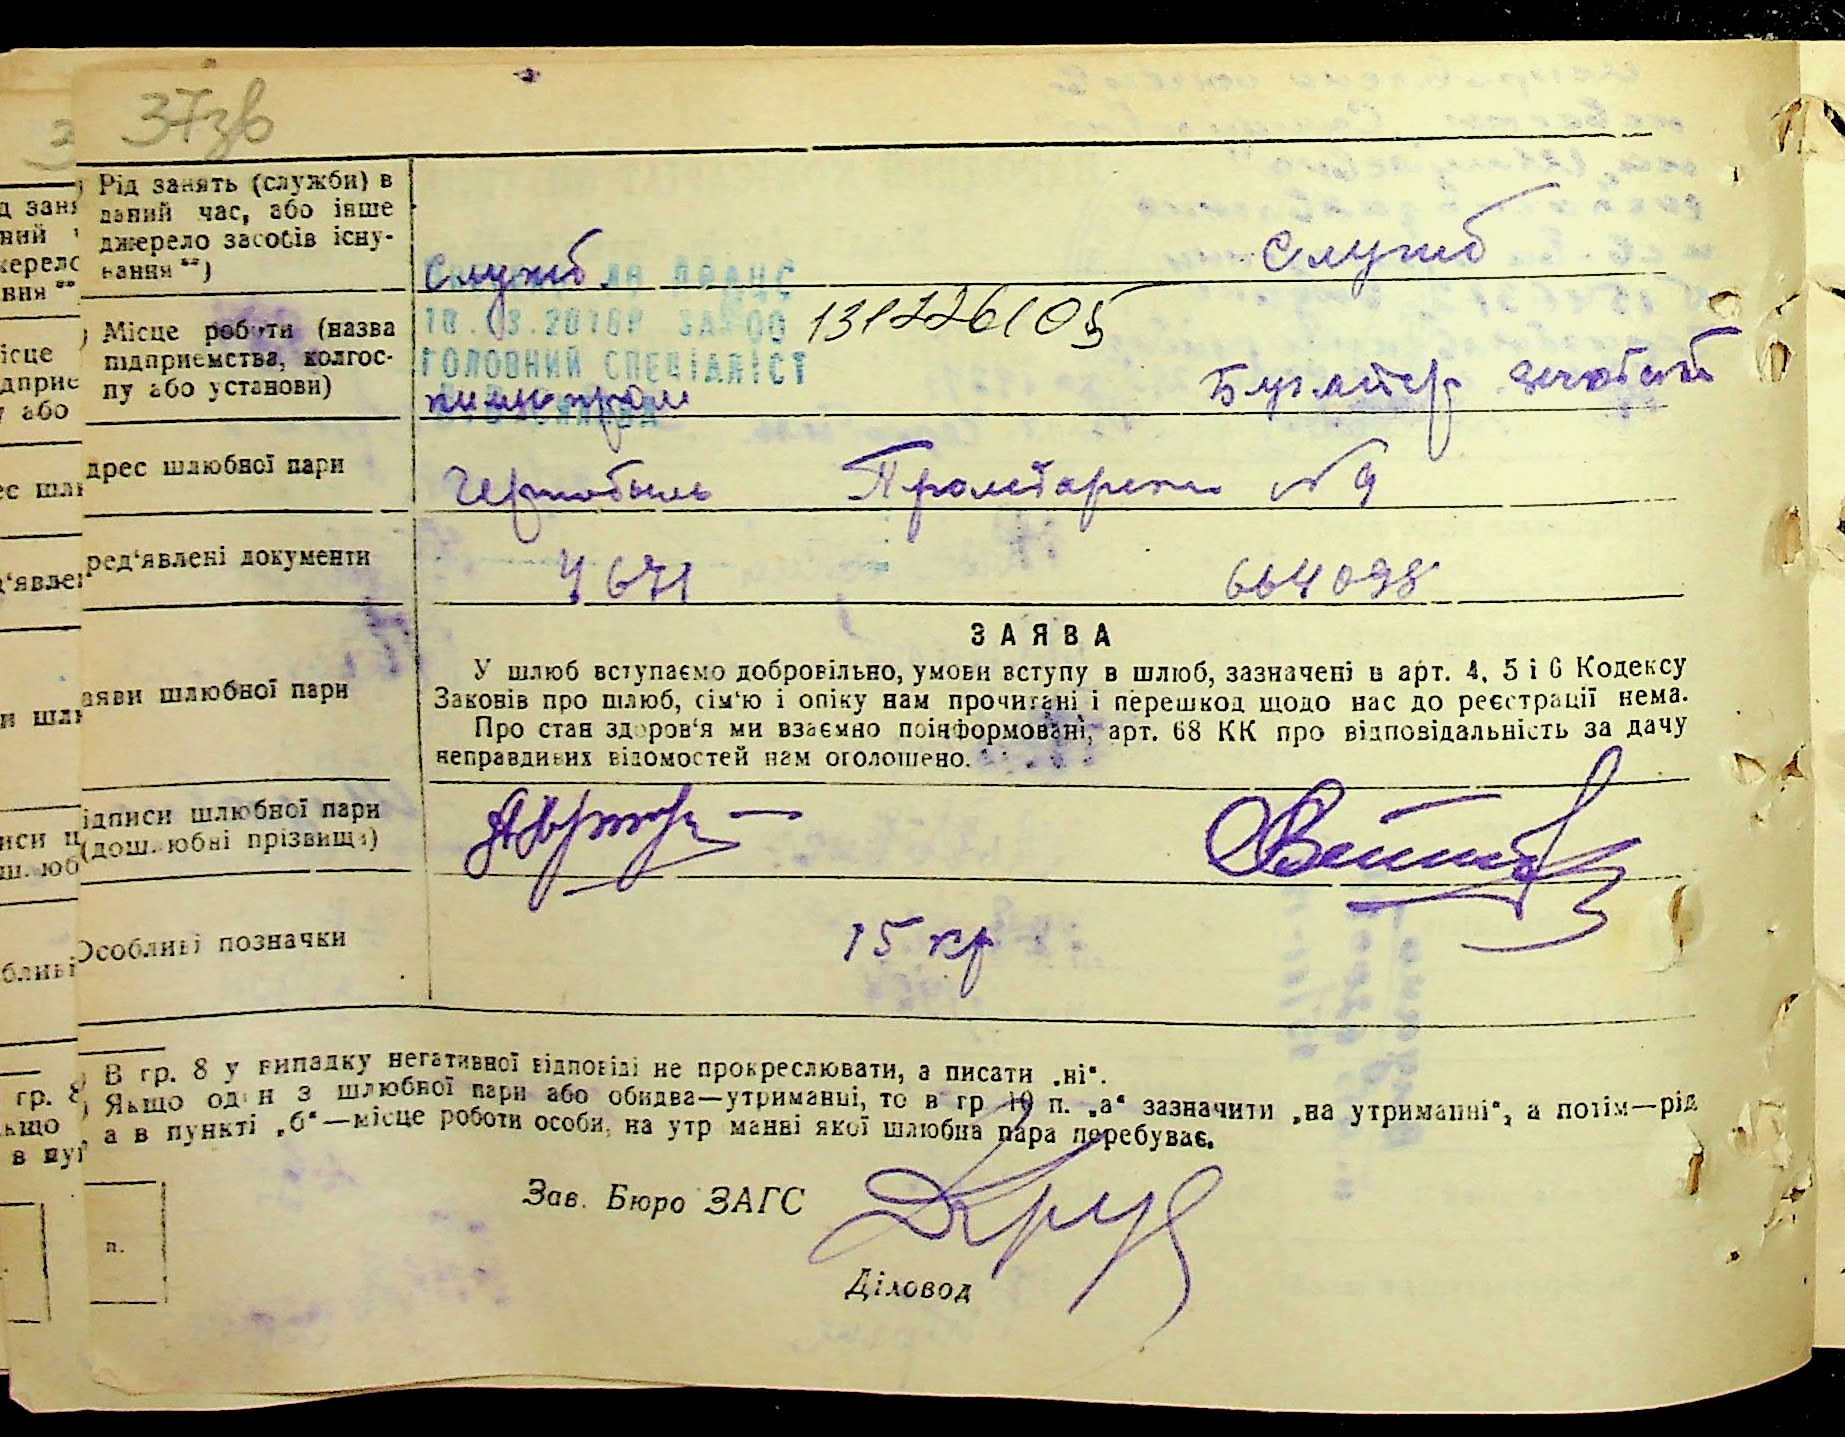 37зв
Рід занять (служби) в
даний час, або інше
джерело засобів існу-
вання **)
служб
служб
Місце роботи (назва
підприємства, колгос-
пу або установи)
131226105
ГОЛОВНИЙ СПЕЦІАЛІСТ
Бугалтер
дрес шлюбної пари
Чернобыль Пролетарска №9
ред'явлені документи
4671
664098
ЗАЯВА
У шлюб вступаємо добровільно, умови вступу в шлюб, зазначені в арт. 4, 5 і 6 Кодексу
Законів про шлюб, сім'ю і опіку нам прочитані і перешкод щодо нас до реєстрації нема.
Про стан здоров'я ми взаємно поінформовані, арт. 68 КК про відповідальність за дачу
неправдивих відомостей нам оголошено.
аяви шлюбної пари
ідписи шлюбної пари
(дошлюбні прізвища)
Особливі позначки
15 кр
В гр. 8 у випадку негативної відповіді не прокреслювати, а писати „ні".
Якщо один з шлюбної пари або обидва—утриманці, то в гр 10 п. „а" зазначити „на утриманні", а потім—рід
а в пункті „б"—місце роботи особи, на утр манні якої шлюбна пара перебуває.
Зав. Бюро ЗАГС
п.
Діловод